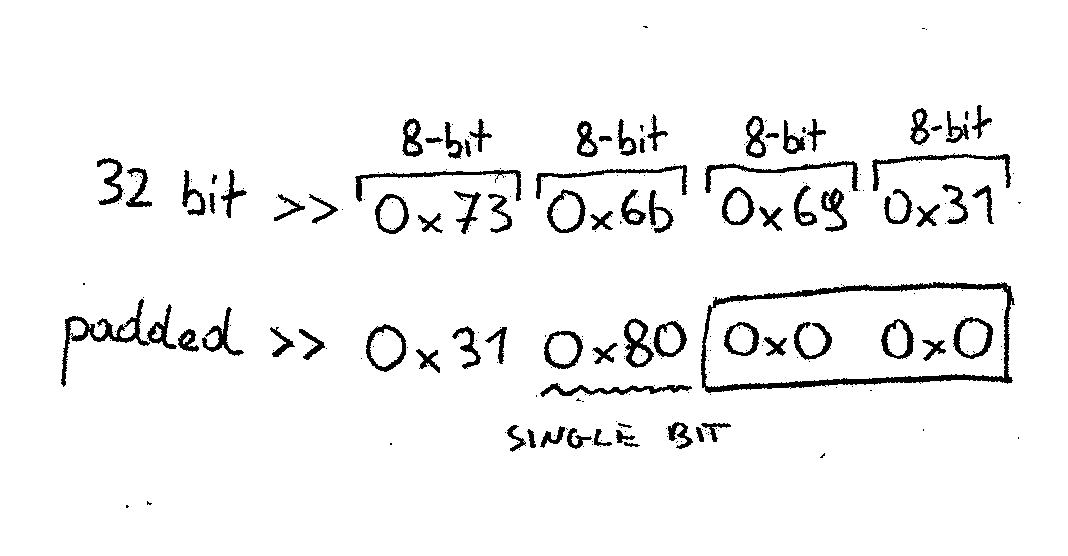 8-bit 8-bit 8-bit 8-bit
32 bit >> 0x73 0x6b 0x69 0x31
padded >> 0x31 0x80 0x0 0x0
SINGLE BIT